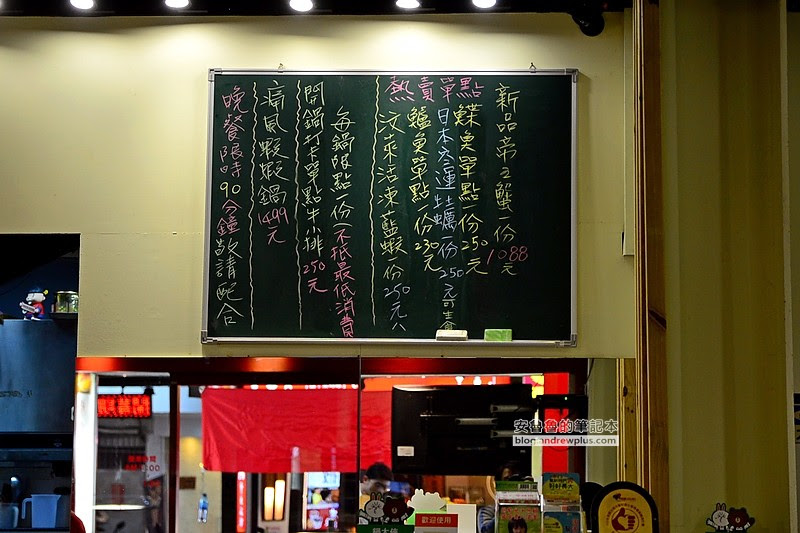 熱賣單點
新品帝王蟹一份1088元
鰈魚單點一份250元
日本空運牡蠣一份250元可生食
鱸魚單點一份230元
汶萊活凍藍蝦一份250元
每鍋限點一份(不抵最低消費
開鍋打卡單點牛小排250元
痛風蝦蝦鍋1499元
晚餐限時90分鐘敬請配合
安魯魯的筆記本
blog.andrewplus.com
歡迎使用